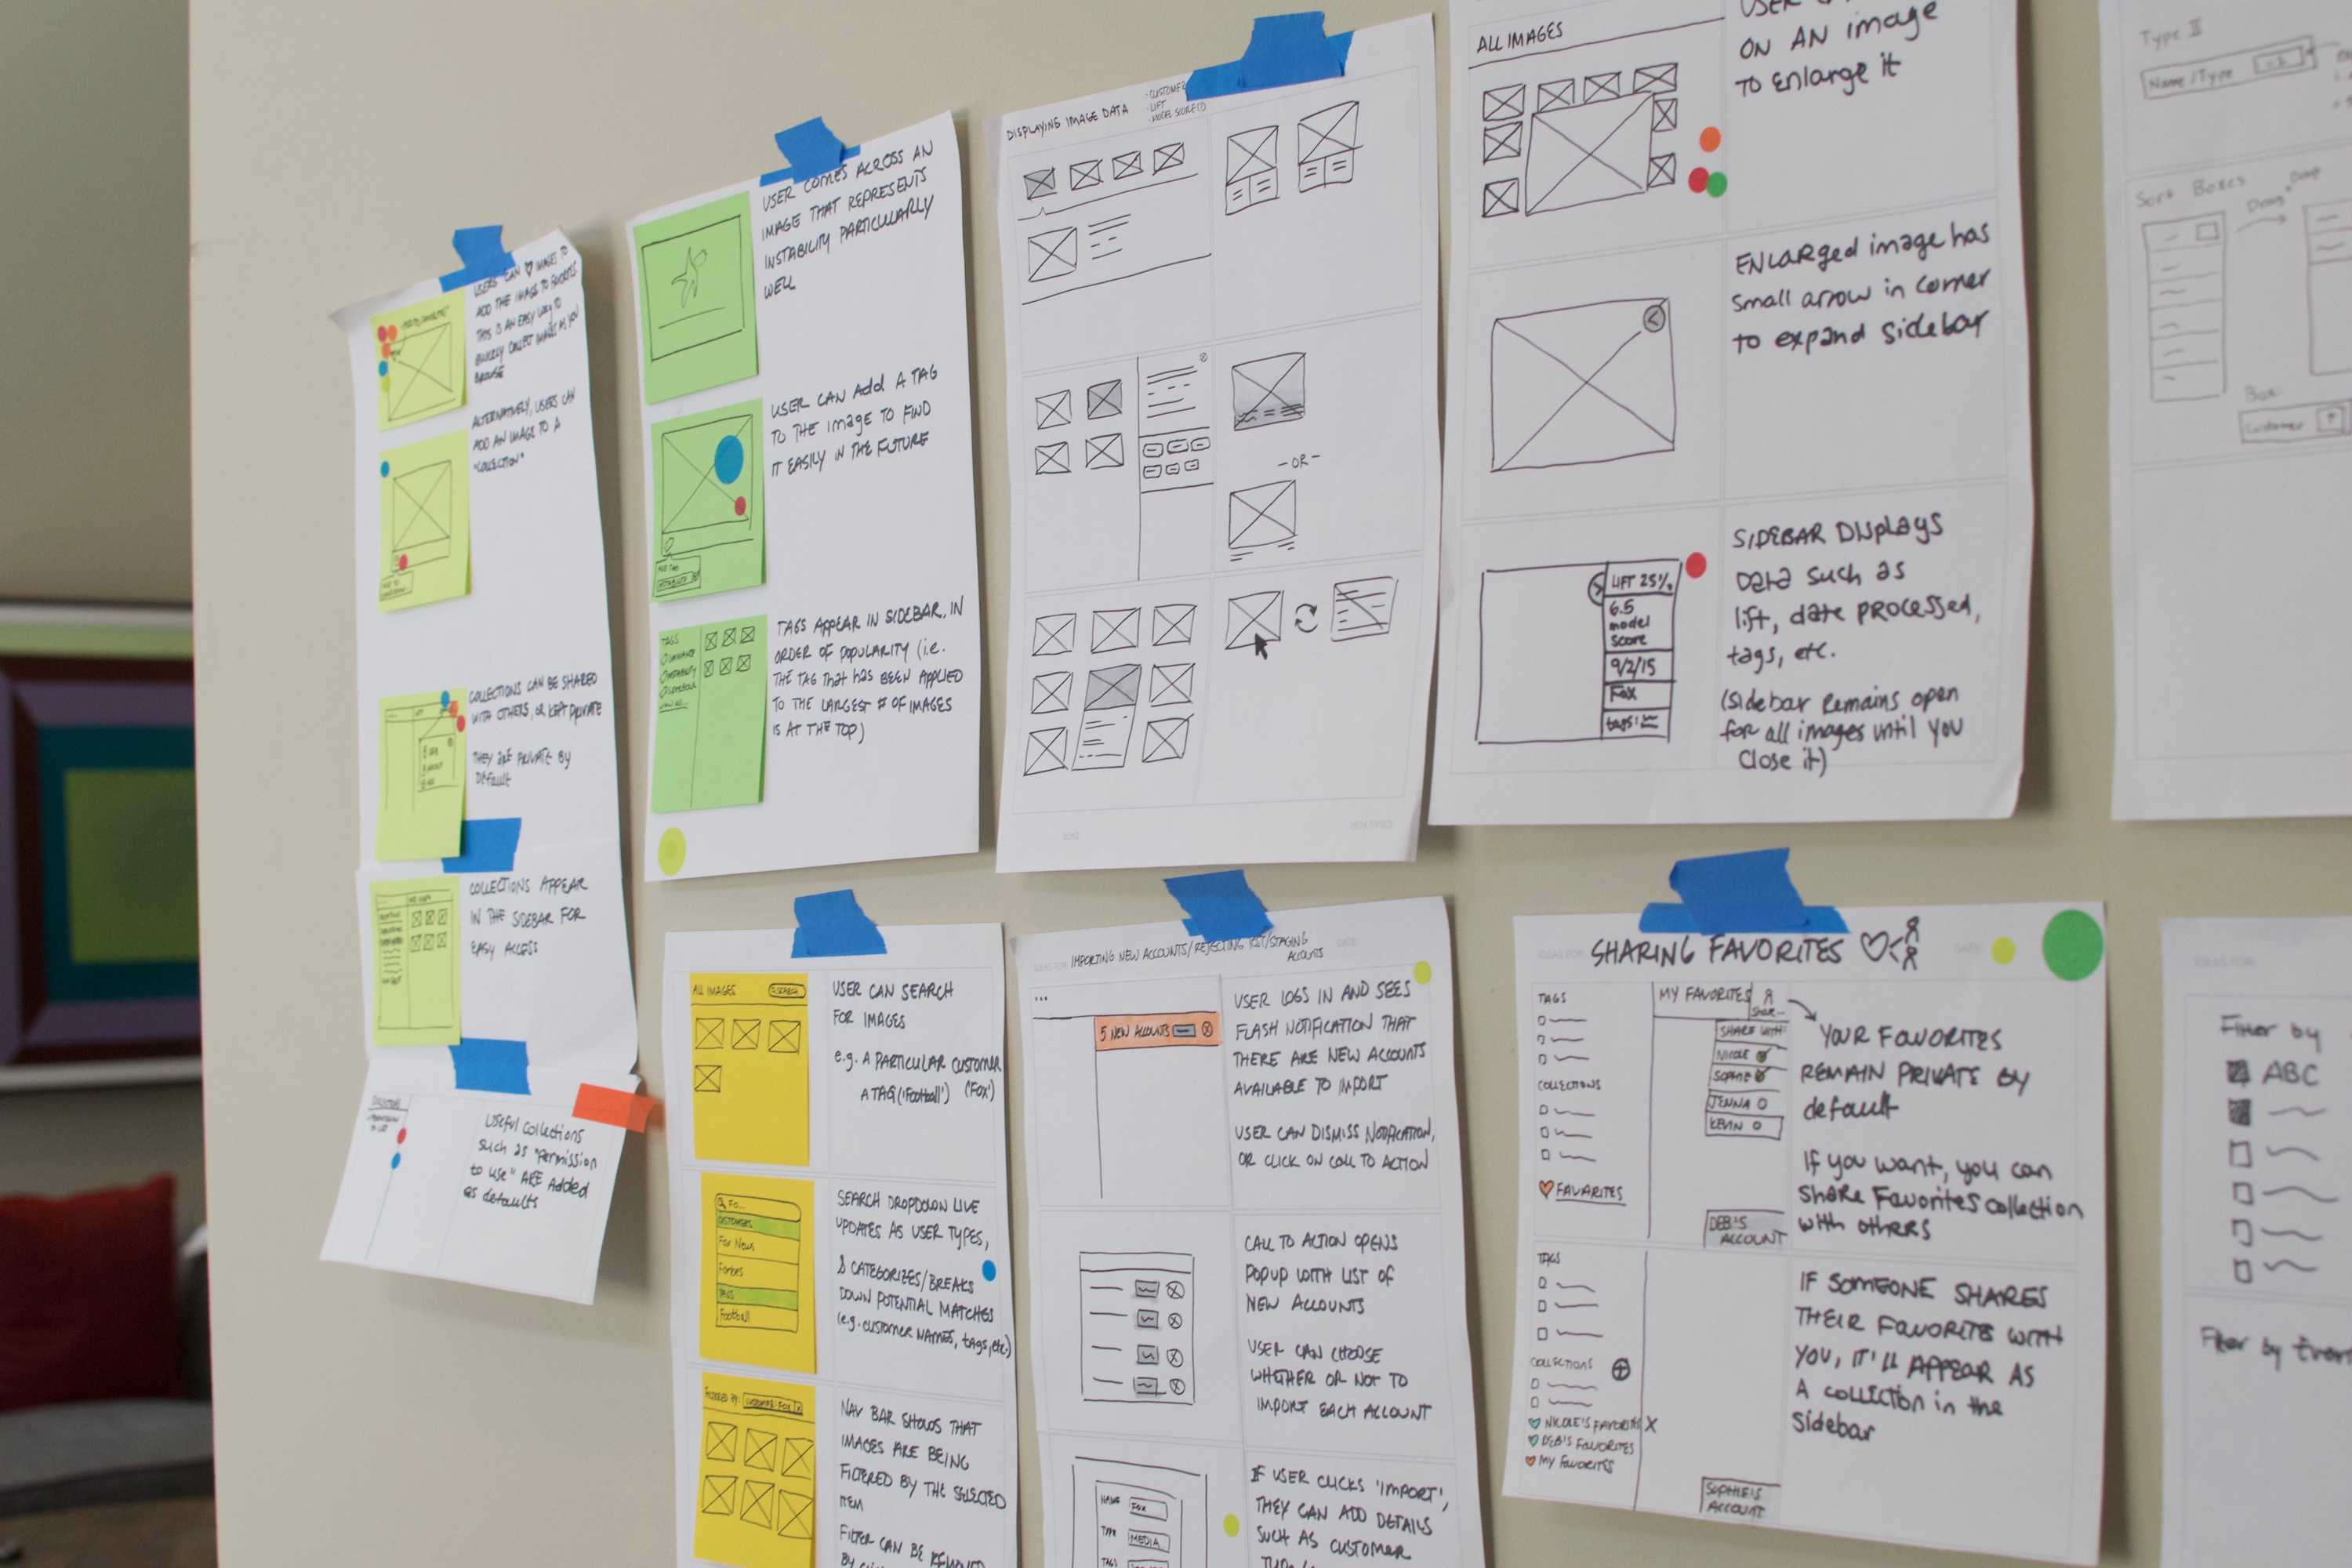 USERS CAN ♡ IMAGES TO
ADD THE IMAGE TO FAVORITES.
THIS IS AN EASY WAY TO
QUICKLY COLLECT IMAGES AS YOU
BROWSE
ALTERNATIVELY, USERS CAN
ADD AN IMAGE TO A
"COLLECTION"
ADD TO
COLLECTIONS CAN BE SHARED
WITH OTHERS, OR KEPT PRIVATE
THEY ARE PRIVATE BY
DEFAULT
COLLECTIONS APPEAR
IN THE SIDEBAR FOR
EASY ACCESS
Useful collections
such as "Permission
to use" ARE Added
as defaults
USER COMES ACROSS AN
IMAGE THAT REPRESENTS
INSTABILITY PARTICULARLY
WELL
USER CAN Add A TAG
TO THE IMAGE TO FIND
IT EASILY IN THE FUTURE
ADD TAG
TAGS
TAGS APPEAR IN SIDEBAR, IN
ORDER OF POPULARITY (i.e.
THE TAG that has BEEN APPLIED
TO THE LARGEST # OF IMAGES
IS AT THE TOP)
DISPLAYING IMAGE DATA
- CUSTOMER
- LIFT
- MODEL SCORE(?)
- OR -
DATE
IDEAS FOR:
ALL IMAGES
ON AN image
TO Enlarge it
ENLARged image has
small arrow in corner
to expand sidebar
LIFT 25%
6.5
model
score
9/2/15
Fox
tags:
SIDEBAR DISPlays
Data such as
lift, date PROCESSED,
tags, etc.
(Sidebar Remains open
for all images until you
Close it)
Type II
Name/Type
Sort Boxes
Drag
Drop
Box:
Customer
ALL IMAGES
SEARCH
USER CAN SEARCH
FOR IMAGES
e.g. A PARTICULAR CUSTOMER
('FOX')
A TAG ('Football')
FO...
CUSTOMERS
Fox News
Forbes
TAGS
Football
SEARCH DROPDOWN LIVE
UPDATES AS USER TYPES,
& CATEGORIZES/BREAKS
DOWN POTENTIAL MATCHES
(e.g. CUSTOMER NAMES, tags, etc.)
FILTERED BY: CUSTOMER: FOX X
NAV BAR SHOWS THAT
IMAGES ARE BEING
FILTERED BY THE SELECTED
ITEM
FILTER CAN BE REMOVED
IDEAS FOR: IMPORTING NEW ACCOUNTS/REJECTING TEST/STAGING
ACCOUNTS
DATE
5 NEW ACCOUNTS
USER LOGS IN AND SEES
FLASH NOTIFICATION THAT
THERE ARE NEW ACCOUNTS
AVAILABLE TO IMPORT
USER CAN DISMISS NOTIFICATION,
OR CLICK ON CALL TO ACTION
CALL TO ACTION OPENS
POPUP WITH LIST OF
NEW ACCOUNTS
USER CAN CHOOSE
WHETHER OR NOT TO
IMPORT EACH ACCOUNT
NAME FOX
TYPE MEDIA
TAGS
IF USER CLICKS 'IMPORT',
THEY CAN ADD DETAILS
SUCH AS CUSTOMER
IDEAS FOR: SHARING FAVORITES
DATE
TAGS
COLLECTIONS
FAVARITES
MY FAVORITES
Share...
SHARE WITH:
NICOLE
SOPHIE
JENNA
KEVIN
DEB'S
ACCOUNT
YOUR FAVORITES
REMAIN PRIVATE BY
default
If you want, you can
share Favorites collection
with others
TAGS
COLLECTIONS
NICOLE'S FAVORITES X
DEB'S FAVORITES
MY FAVORITES
SOPHIE'S
ACCOUNT
IF SOMEONE SHARES
THEIR FAVORITES WITH
YOU, IT'LL APPEAR AS
A collection in the
Sidebar
IDEAS FOR:
Filter by
ABC
Filter by